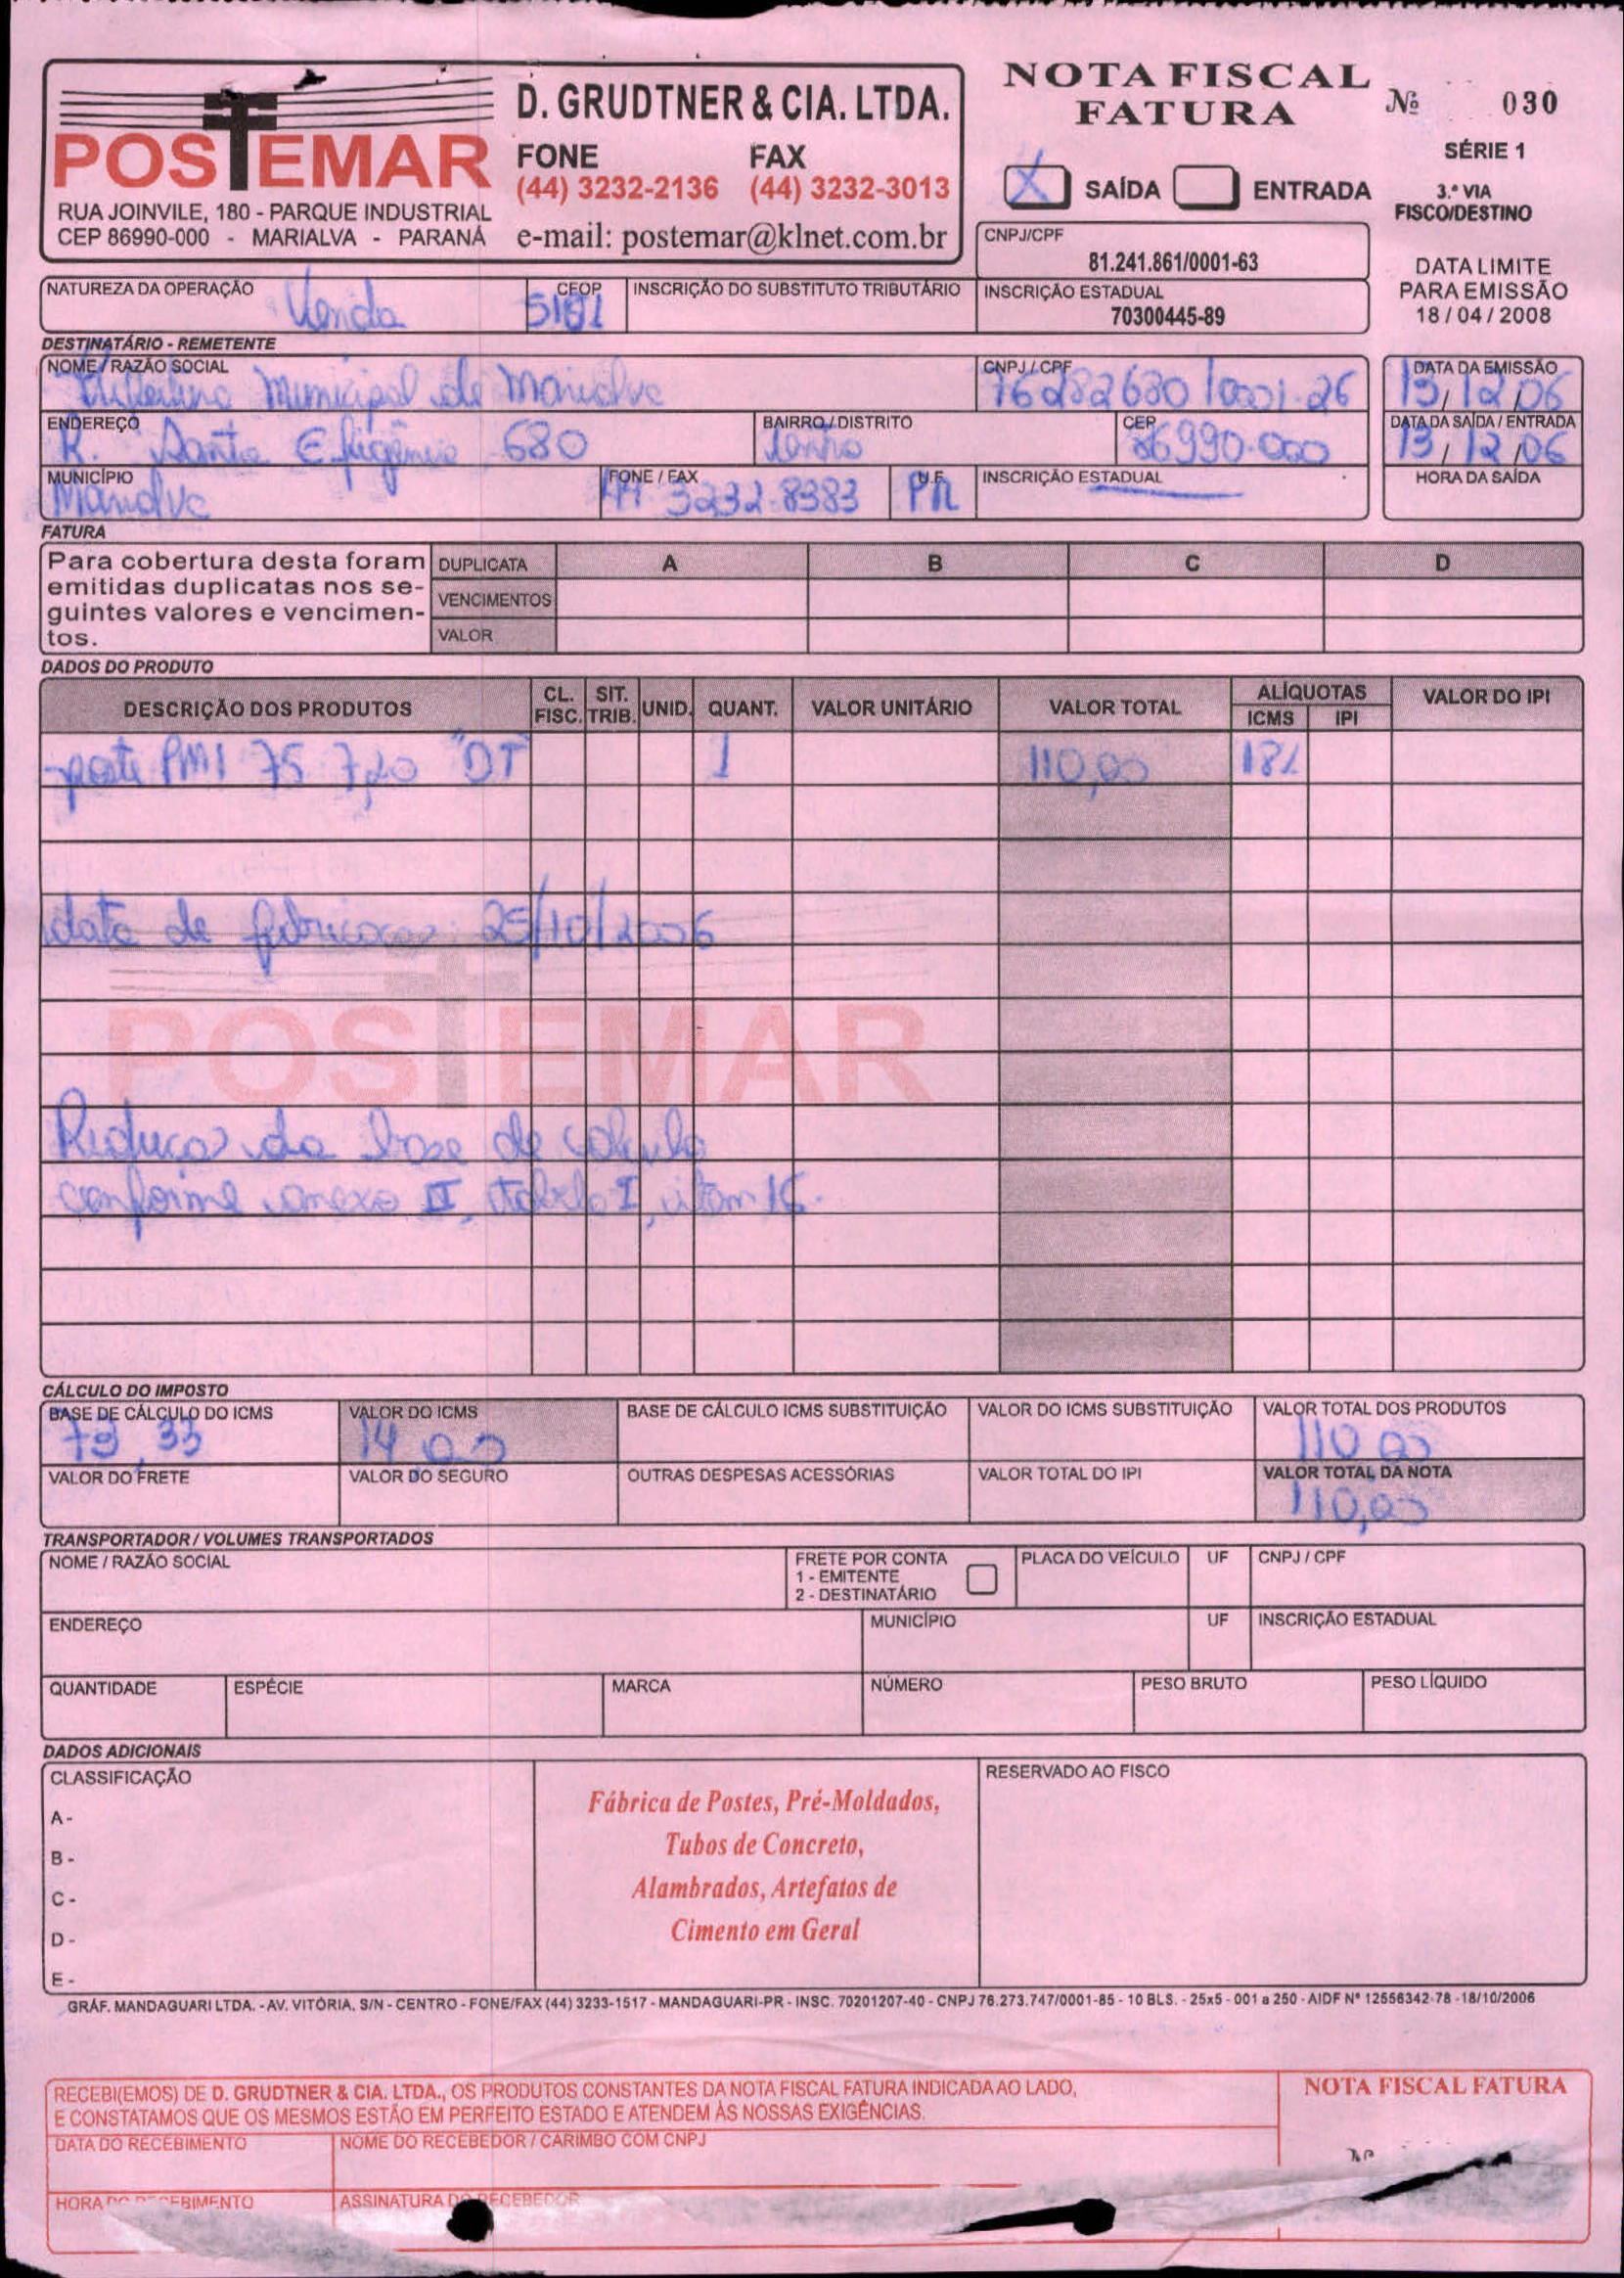 POSTEMAR
RUA JOINVILE, 180 - PARQUE INDUSTRIAL
CEP 86990-000 - MARIALVA - PARANÁ
D. GRUDTNER & CIA. LTDA.
FONE FAX
(44) 3232-2136 (44) 3232-3013
e-mail: postemar@klnet.com.br
NOTA FISCAL
FATURA
Nº 030
SÉRIE 1
X SAÍDA ENTRADA
3.ª VIA
FISCO/DESTINO
CNPJ/CPF
81.241.861/0001-63
INSCRIÇÃO ESTADUAL
70300445-89
DATA LIMITE
PARA EMISSÃO
18 / 04 / 2008
NATUREZA DA OPERAÇÃO CFOP INSCRIÇÃO DO SUBSTITUTO TRIBUTÁRIO
Venda
DESTINATÁRIO - REMETENTE
NOME / RAZÃO SOCIAL CNPJ / CPF DATA DA EMISSÃO
Municipal de Marialva 76282680/0001-26 13/12/06
ENDEREÇO BAIRRO / DISTRITO CEP DATA DA SAÍDA / ENTRADA
R. Santa Efigênia 680 Centro 86990-000 13/12/06
MUNICÍPIO FONE / FAX U.F. INSCRIÇÃO ESTADUAL HORA DA SAÍDA
Marialva 44 3232-8383 PR
FATURA
Para cobertura desta foram
emitidas duplicatas nos se-
guintes valores e vencimen-
tos.
DUPLICATA A B C D
VENCIMENTOS
VALOR
DADOS DO PRODUTO
DESCRIÇÃO DOS PRODUTOS CL. FISC. SIT. TRIB. UNID. QUANT. VALOR UNITÁRIO VALOR TOTAL ALÍQUOTAS ICMS IPI VALOR DO IPI
poste PM1 75 7,20 "DT" 1 110,00 18%
data de fabricação: 25/10/2006
POSTEMAR
Redução da base de calculo
conforme anexo II, tabela I, item 16.
CÁLCULO DO IMPOSTO
BASE DE CÁLCULO DO ICMS VALOR DO ICMS BASE DE CÁLCULO ICMS SUBSTITUIÇÃO VALOR DO ICMS SUBSTITUIÇÃO VALOR TOTAL DOS PRODUTOS
73,33 14,00 110,00
VALOR DO FRETE VALOR DO SEGURO OUTRAS DESPESAS ACESSÓRIAS VALOR TOTAL DO IPI VALOR TOTAL DA NOTA
110,00
TRANSPORTADOR / VOLUMES TRANSPORTADOS
NOME / RAZÃO SOCIAL FRETE POR CONTA PLACA DO VEÍCULO UF CNPJ / CPF
1 - EMITENTE
2 - DESTINATÁRIO
ENDEREÇO MUNICÍPIO UF INSCRIÇÃO ESTADUAL
QUANTIDADE ESPÉCIE MARCA NÚMERO PESO BRUTO PESO LÍQUIDO
DADOS ADICIONAIS
CLASSIFICAÇÃO
A -
B -
C -
D -
E -
Fábrica de Postes, Pré-Moldados,
Tubos de Concreto,
Alambrados, Artefatos de
Cimento em Geral
RESERVADO AO FISCO
GRÁF. MANDAGUARI LTDA. - AV. VITÓRIA, S/N - CENTRO - FONE/FAX (44) 3233-1517 - MANDAGUARI-PR - INSC. 70201207-40 - CNPJ 76.273.747/0001-85 - 10 BLS. - 25x5 - 001 a 250 - AIDF Nº 12556342-78 -18/10/2006
RECEBI(EMOS) DE D. GRUDTNER & CIA. LTDA., OS PRODUTOS CONSTANTES DA NOTA FISCAL FATURA INDICADA AO LADO,
E CONSTATAMOS QUE OS MESMOS ESTÃO EM PERFEITO ESTADO E ATENDEM ÀS NOSSAS EXIGÊNCIAS.
NOTA FISCAL FATURA
DATA DO RECEBIMENTO NOME DO RECEBEDOR / CARIMBO COM CNPJ
Nº
HORA DO RECEBIMENTO ASSINATURA DO RECEBEDOR